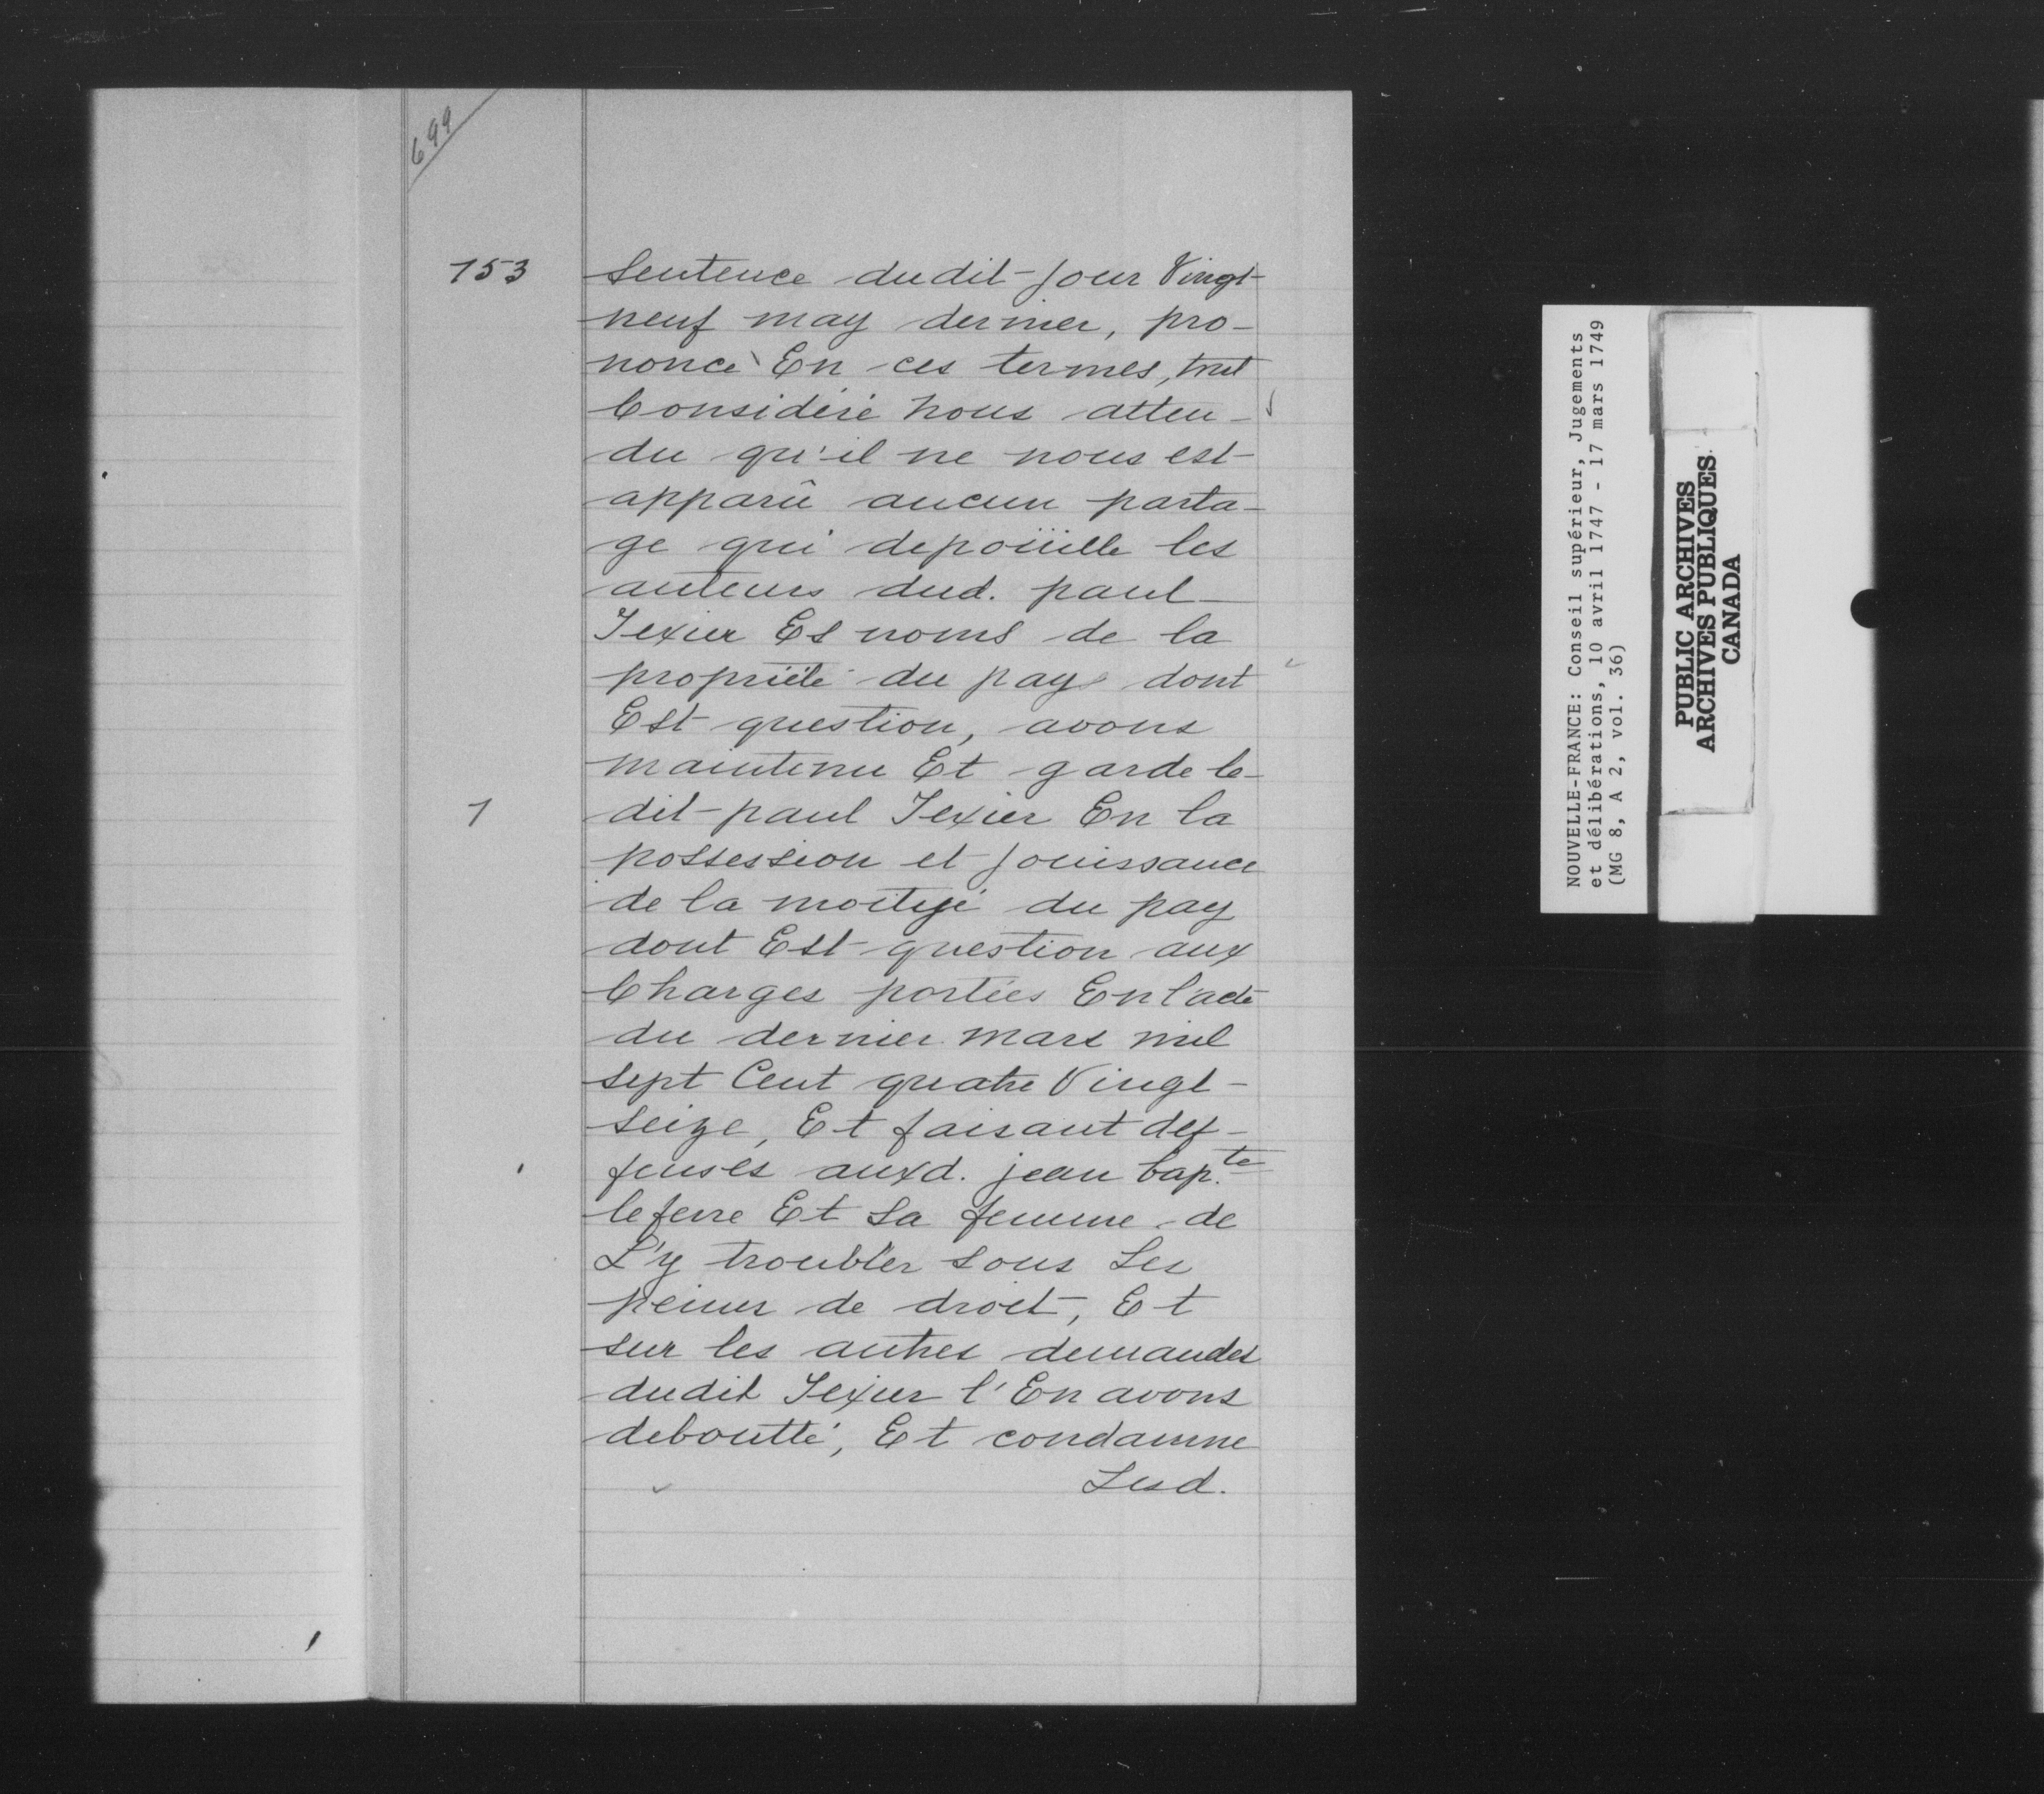 699
153
Sentence dudit Jour Vingt-
neuf may dernier, pro-
noncé En ces termes, tout
Considéré nous atten-
du qu'il ne nous est
apparû aucun parta-
ge qui depoüille les
auteurs dud. paul
Texier Es noms de la
propriété du pays dont
Est question, avons
maintenu Et garde le-
1
dit paul Texier En la
possession et Jouissance
de la moityé du pay
dont Est question aux
Charges portées En l'acte
du dernier mars mil
sept Cent quatre Vingt-
seize, Et faisant def-
fenses auxd. jean bap.te
lefevre Et Sa femme de
L'y troubler sous Les
peines de droit, Et
sur les autres demandes
dudit Texier l'En avons
deboutté, Et condamne
Lesd.
NOUVELLE-FRANCE: Conseil supérieur, Jugements
et délibérations, 10 avril 1747 - 17 mars 1749
(MG 8, A 2, vol. 36)
PUBLIC ARCHIVES
ARCHIVES PUBLIQUES
CANADA